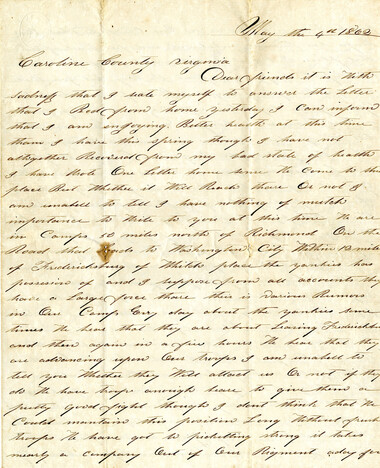 May the 4th 1862
Caroline County verginia
Dear friends it is With
sadness that I seate myself to answer the letter
that I Recd from home yesterday I Can inform
that I am enjoying Better health at this time
then I have this spring though I have not
altogether Recovered from my bad state of health
I have Wrote One letter home since We Come to this
place But Whether it Will Reach there Or not I
am unable to tell I have nothing of mutch
importance to Write to you at this time We are
in Camps 50 miles north of Richmond On the
Road that leads to Washington City Within 12 miles
of Fredericksburg of Which place the yankies has
possesion of and I suppose from all accounts they
have a Large force thare this is various Rumors
in Our Camp Evry day about the yankies some
times We hear that they are about leaving Fredericksburg
and then again in a few hours We hear that they
are advancing upon Our troops I am unable to
tell you Whether they Will attact us Or not if they
do We have troops enough heare to give them a
pretty good fight though I dont think that We
Could maintain this position Long Without fresh
troops We have got to picketting strong it takes
nearly a company Out of Our Regiment aday for